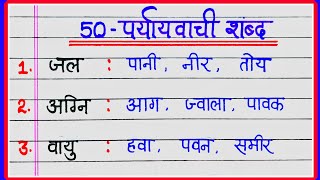 50-पर्यायवाची शब्द
1. जल : पानी, नीर, तोय
2. अग्नि : आग, ज्वाला, पावक
3. वायु : हवा, पवन, समीर